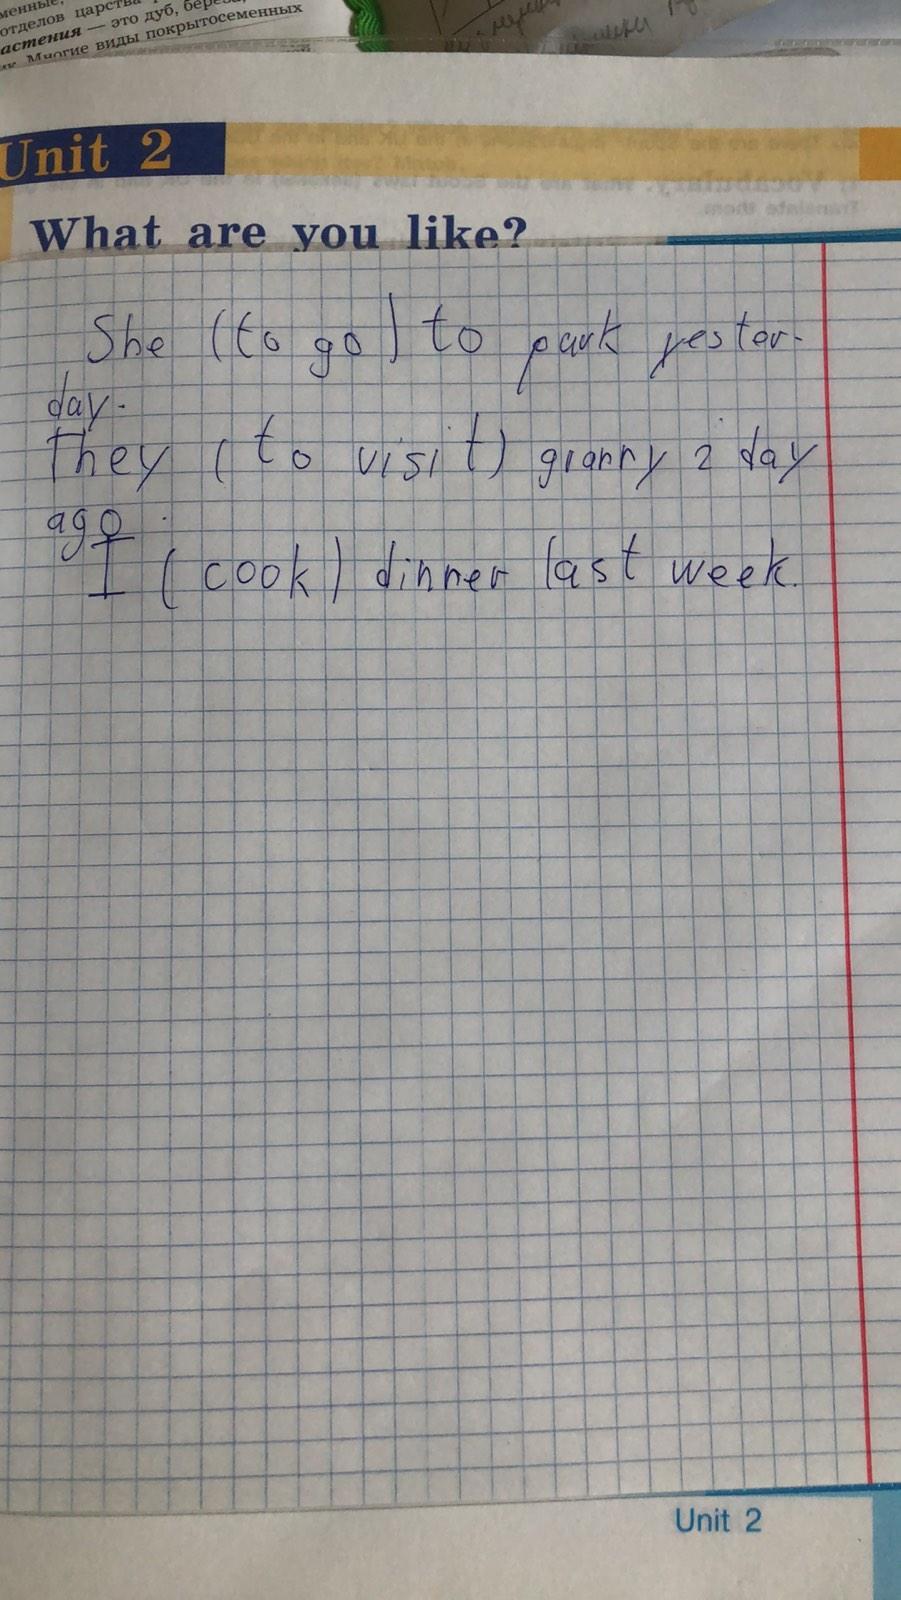 отделов царства
астения — это дуб, береза,
Многие виды покрытосеменных
Unit 2
What are you like?
She (to go) to park yester-
day.
They (to visit) granny 2 day
ago.
I (cook) dinner last week.
Unit 2